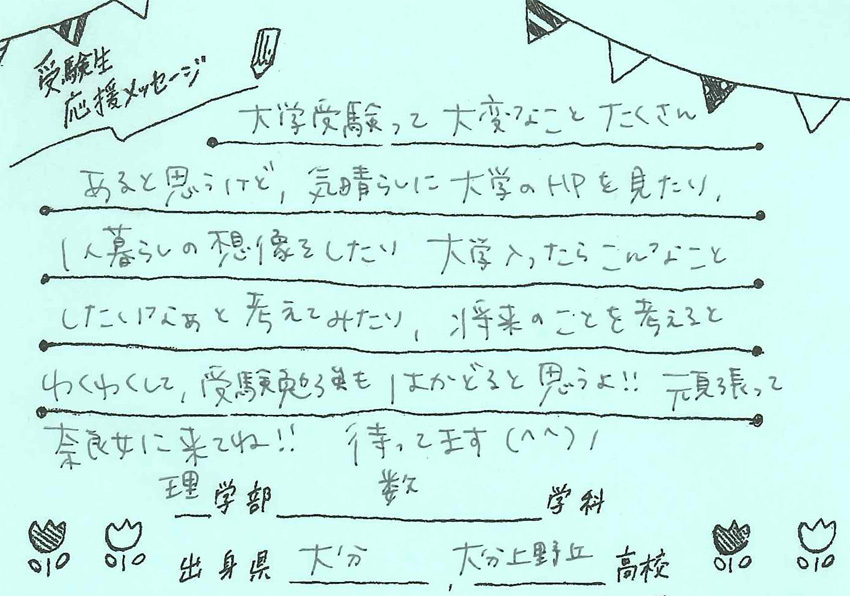 受験生
応援メッセージ
大学受験って 大変なこと たくさん
あると思うけど、気晴らしに 大学のHPを見たり、
1人暮らしの想像をしたり 大学入ったらこんなこと
したいなぁと考えてみたり、将来のことを考えると
わくわくして、受験勉強もはかどると思うよ!! 頑張って
奈良女に来てね!! 待ってます(^^)/
理学部 数 学科
出身県 大分 , 大分上野丘 高校